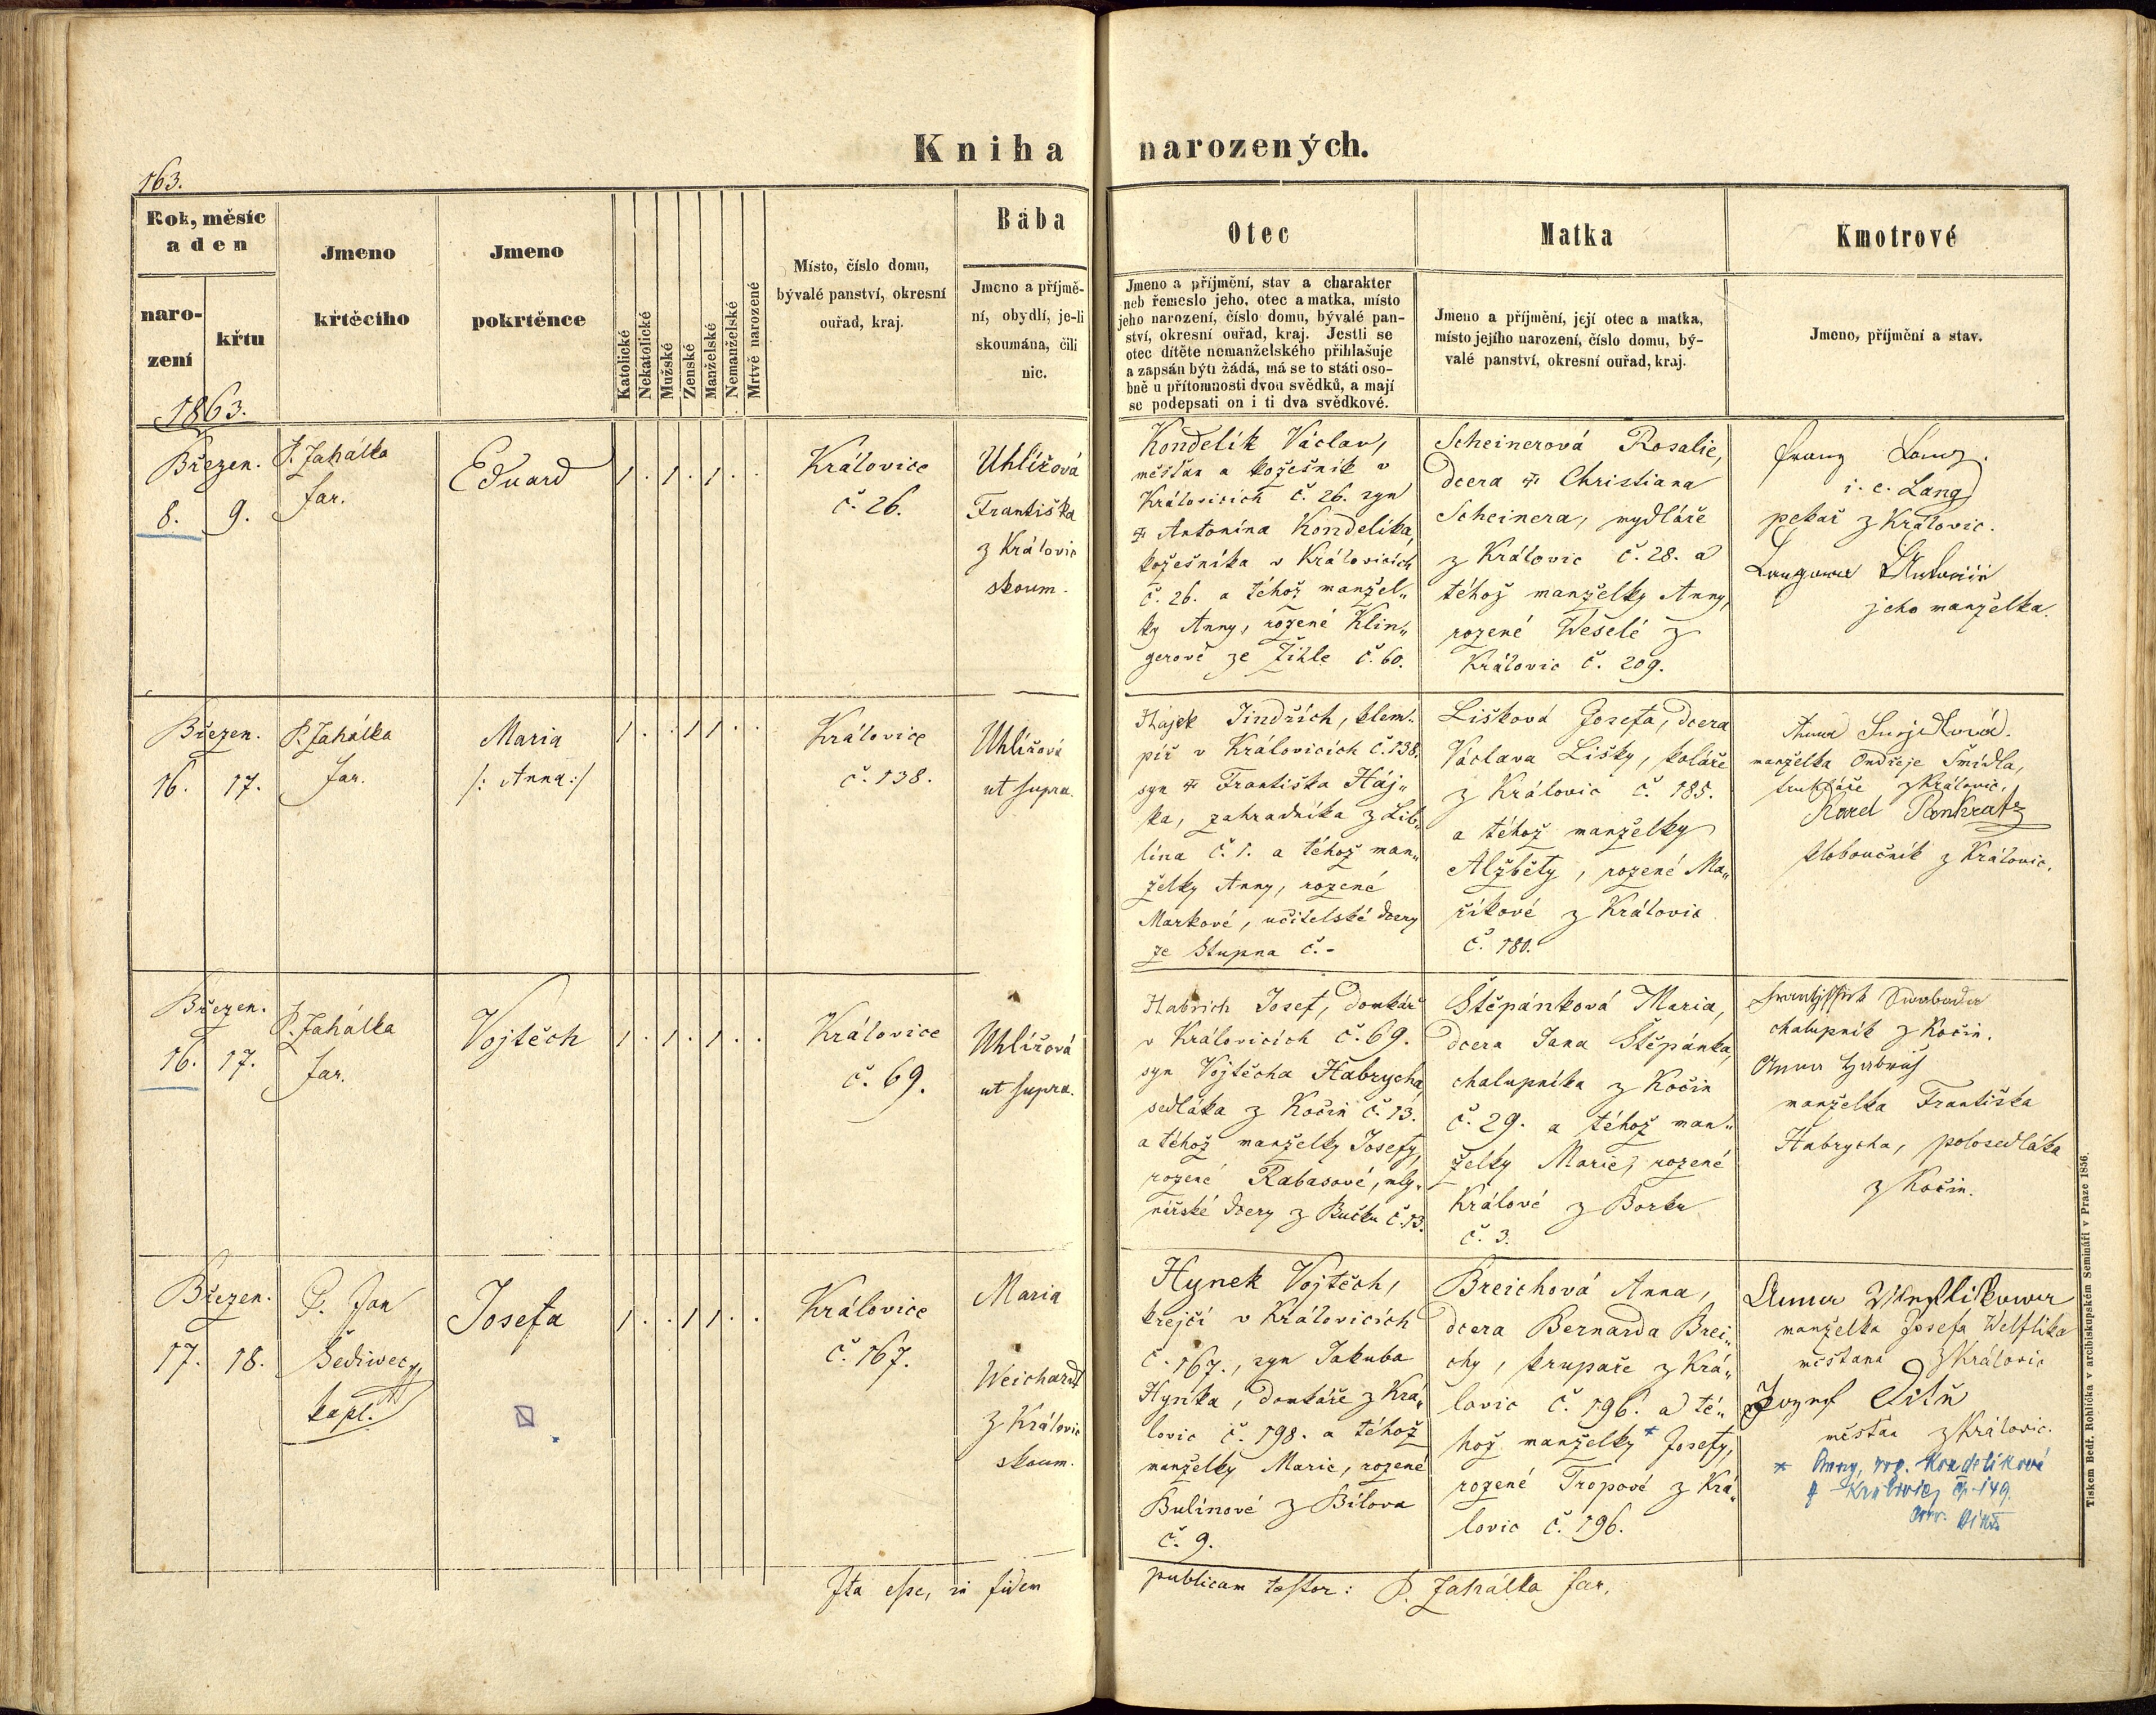 Kniha narozených.
163.
Rok, měsíc
a den
naro-
zení
křtu
1863.
Jmeno
křtěcího
Jmeno
pokrtěnce
Katolické
Nekatolické
Mužské
Ženské
Manželské
Nemanželské
Mrtvě narozené
Místo, číslo domu,
bývalé panství, okresní
ouřad, kraj.
Bába
Jmeno a příjmě-
ní, obydlí, je-li
skoumána, čili
nic.
Otec
Jmeno a příjmění, stav a charakter
neb řemeslo jeho, otec a matka, místo
jeho narození, číslo domu, bývalé pan-
ství, okresní ouřad, kraj. Jestli se
otec dítěte nemanželského přihlašuje
a zapsán býti žádá, má se to státi oso-
bně u přítomnosti dvou svědků, a mají
se podepsati on i ti dva svědkové.
Matka
Jmeno a příjmění, její otec a matka,
místo jejího narození, číslo domu, bý-
valé panství, okresní ouřad, kraj.
Kmotrové
Jmeno, příjmění a stav.
Březen.
8. 9.
P. Zahálka
far.
Eduard
1 . 1 . 1 . .
Královice
č. 26.
Uhlířová
Františka
z Královic
skoum.
Kondelík Václav,
měšťan a kožešník v
Královicích č. 26. syn
Antonína Kondelíka,
kožešníka v Královicích
č. 26. a téhož manžel„
ky Anny, rozené Klin„
gerové ze Žihle č. 60.
Scheinerová Rosalie,
dcera Christiana
Scheinera, mydláře
z Královic č. 28. a
téhož manželky Anny,
rozené Weselé z
Královic č. 209.
Franz Lang.
i. e. Lang
pekař z Královic.
jeho manželka.
Březen.
16. 17.
P. Zahálka
far.
Maria
/: Anna :/
1 . . 1 1 . .
Královice
č. 138.
Uhlířová
ut supra.
Hájek Jindřich, klem„
píř v Královicích č. 138.
syn Františka Háj„
ka, zahradníka z Lib„
lína č. 1. a téhož man„
želky Anny, rozené
Markové, učitelské dcery
ze Stupna č. -
Lišková Josefa, dcera
Václava Lišky, koláře
z Královic č. 185.
a téhož manželky
Alžběty, rozené Ma„
říkové z Královic
č. 180.
Anna
manželka Ondřeje Šmídla,
truhláře z Královic.
Karel Pankratz
kloboučník z Královic.
Březen.
16. 17.
P. Zahálka
far.
Vojtěch
1 . 1 . 1 . .
Královice
č. 69.
Uhlířová
ut supra.
Habrich Josef, domkář
v Královicích č. 69.
syn Vojtěcha Habrycha,
sedláka z Kočín č. 13.
a téhož manželky Josefy,
rozené Rabasové, mly„
nářské dcery z Bučku č. 13.
Štěpánková Maria,
dcera Jana Štěpánka,
chalupníka z Kočín
č. 29. a téhož man„
želky Marie, rozené
Králové z Borku
č. 3.
Swoboda
chalupník z Kočín.
Anna Habrich
manželka Františka
Habrycha, polosedláka
z Kočín.
Březen.
17. 18.
P. Jan
Šediwec
kapl.
Josefa
1 . . 1 1 . .
Královice
č. 167.
Maria
Weichardt
z Královic
skoum.
Hynek Vojtěch,
krejčí v Královicích
č. 167., syn Jakuba
Hynka, domkáře z Krá„
lovic č. 198. a téhož
manželky Marie, rozené
Bulínové z Bílova
č. 9.
Breichová Anna,
dcera Bernarda Brei„
chy, krupaře z Krá„
lovic č. 196. a té„
hož manželky * Josefy,
rozené Tropové z Krá„
lovic č. 196.
Anna
manželka Josefa Welflíka
měštana z Královic
Jozef
měštan z Královic.
* Anny, roz. Kondelíkové
z Královic čp. 149.
Ita esse, in fidem publicam testor: P. Zahálka far.
Tiskem Bedř. Rohlíčka v arcibiskupském Semináři v Praze 1856.